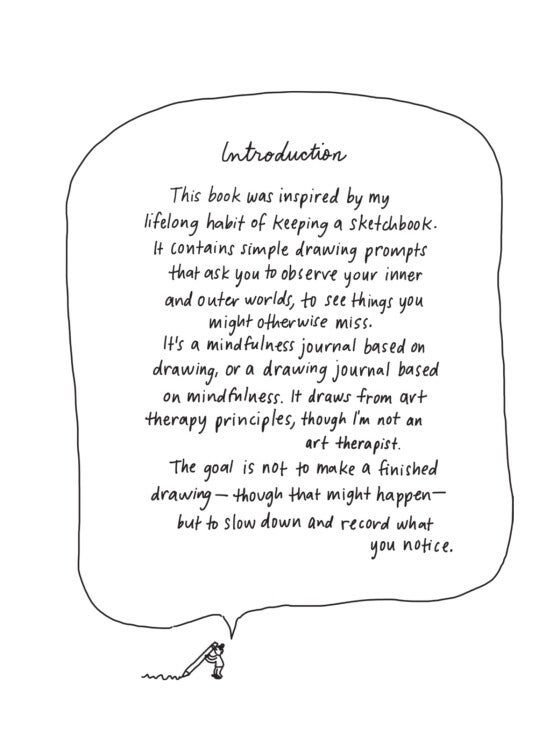 Introduction
This book was inspired by my
lifelong habit of keeping a sketchbook.
It contains simple drawing prompts
that ask you to observe your inner
and outer worlds, to see things you
might otherwise miss.
It's a mindfulness journal based on
drawing, or a drawing journal based
on mindfulness. It draws from art
therapy principles, though I'm not an
art therapist.
The goal is not to make a finished
drawing — though that might happen —
but to slow down and record what
you notice.